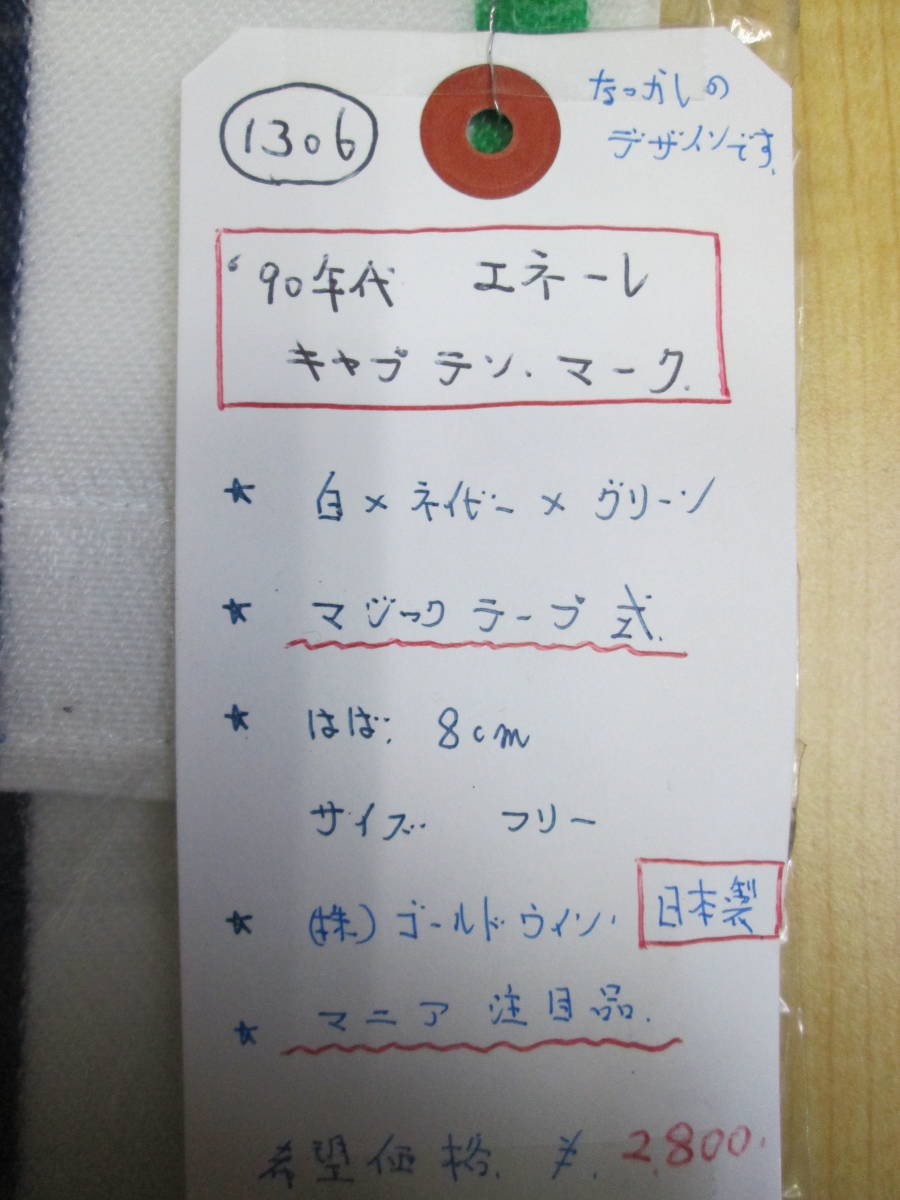 1306
なつかしの
デザインです.
'90年代 エネーレ
キャプテン.マーク.
★ 白×ネイビー×グリーン
★ マジックテープ式.
★ はば. 8cm
サイズ フリー
★ (株)ゴールドウイン. 日本製
★ マニア 注目品.
希望価格. ¥. 2,800.